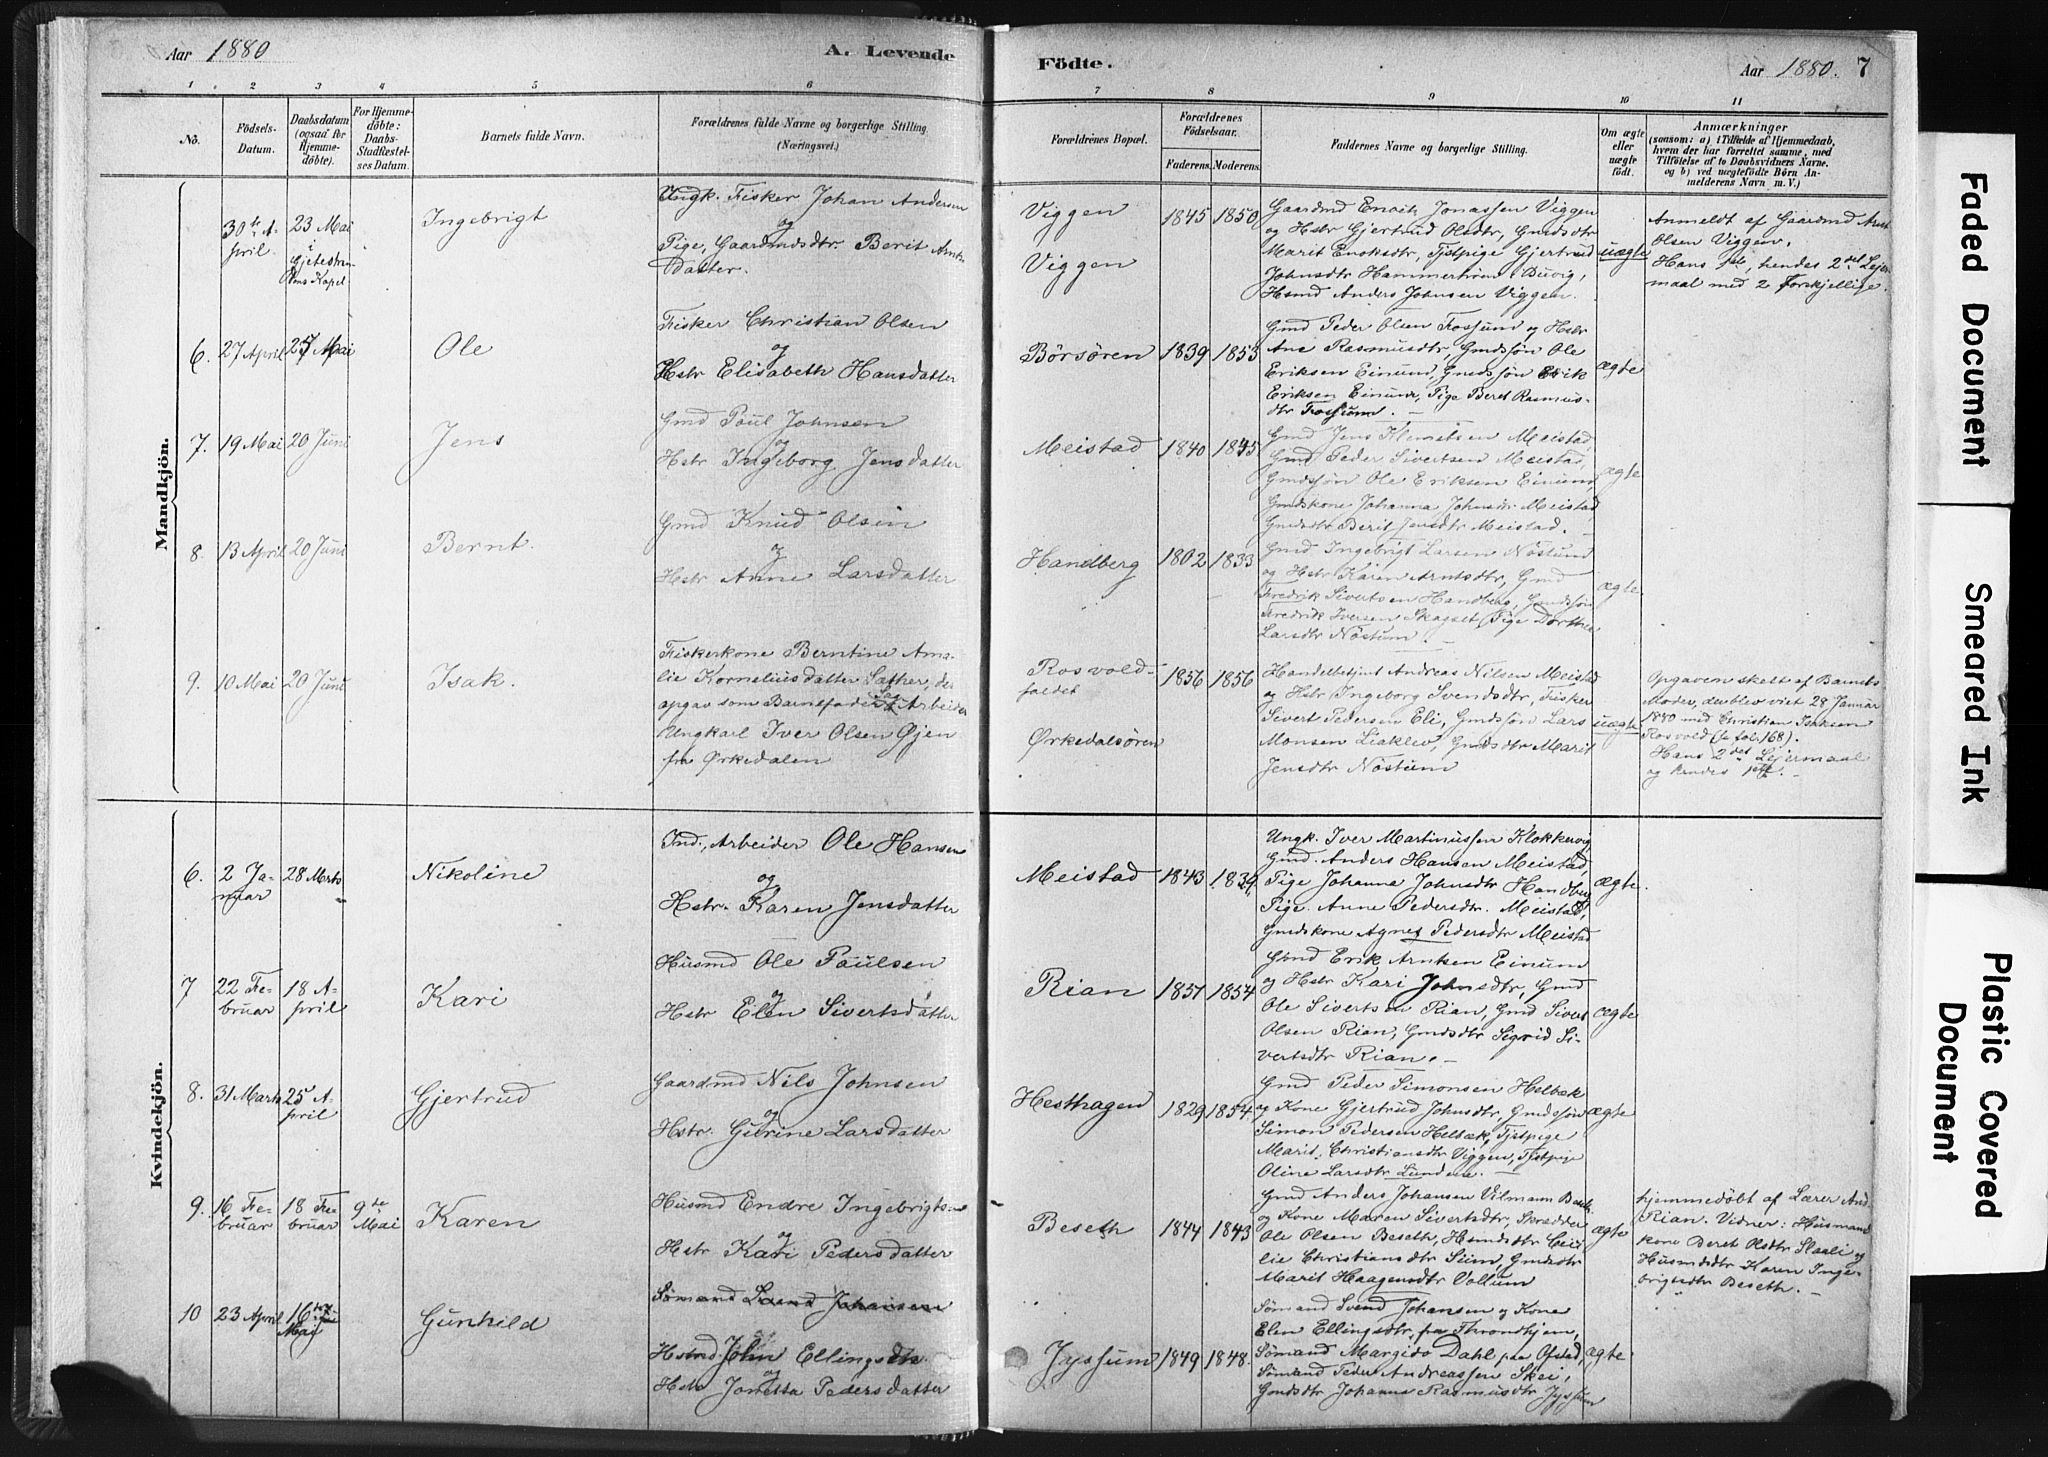 Aar 1880
A. Levende
Födte.
Aar 1880. 7
1 2 3 4 5 6
7 8 9 10 11
No.
Födsels-
Datum.
Daabsdatum
(ogsaa for
Hjemme-
döbte).
For Hjemme-
döbte:
Daabs-
Stadfæstel-
ses Datum.
Barnets fulde Navn.
Forældrenes fulde Navne og borgerlige Stilling.
(Næringsvei.)
Forældrenes Bopæl.
Forældrenes
Födselsaar.
Faderens. Moderens.
Faddernes Navne og borgerlige Stilling.
Om ægte
eller
uægte
födt.
Anmærkninger
(saasom: a) i Tilfælde af Hjemmedaab,
hvem der har forrettet samme, med
Tilföielse af to Daabsvidners Navne.
og b) ved uægtefödte Börn An-
melderens Navn m. V.)
Mandkjön.
30te A-
pril.
23 Mai
i
Kapel
Ingebrigt
Ungk. Fisker Johan Andersen
og
Pige, Gaardmdsdtr. Berit Arnts-
datter.
Viggen
Viggen
1845 1850
Gaardmd Jonassen Viggen
og Hstr Gjertrud Olsdtr, Gmdsdtr
Marit Tjstpige Gjertrud
Johnsdtr Buvig,
Hsmd Anders Johnsen Viggen.
uægte
Anmeldt af Gaardmd Arnt
Olsen Viggen.
Hans 1ste, hendes 2det Leier-
maal med 2 forskjellige.
6. 27 April 27 Mai
Ole
Fisker Christian Olsen
og
Hstr Elisabeth Hansdatter
Börsören 1839 1853
Gmd Peder Olsen Fossum og Hstr
Ane Rasmusdtr, Gmdssøn Ole
Eriksen Einum, Gmdssøn Erik
Eriksen Einum, Pige Beret Rasmus-
dtr Fossum. —
ægte
7. 19 Mai 20 Juni
Jens
Gmd Poul Johnsen
og
Hstr Ingeborg Jensdatter
Meistad 1840 1845
Gmd Jens Klemetsen Meistad,
Gmd Peder Sivertsen Meistad,
Gmdssøn Ole Eriksen Einum,
Gmdskone Johanna Johnsdtr Meistad,
Gmdsdtr Berit Jensdtr Meistad.
ægte
8. 13 April 20 Juni
Bernt.
Gmd Knud Olsen
og
Hstr Anne Larsdatter
Handberg 1802 1833
Gmd Ingebrigt Larsen Nöstum
og Hstr Karen Arntsdtr, Gmd
Fredrik Sivertsen Handberg, Gmdssøn
Fredrik Iversen Skogset, Pige Dorthea
Larsdtr Nöstum.
ægte
9. 10 Mai 20 Juni
Isak.
Fiskerkone Berntine Ama-
lie Korneliusdatter Sæther, der
opgav som Barnefader Arbeider
Ungkarl Iver Olsen Øjen
fra Ørkedalen
Rosvold-
faldet
Ørkedalsören
1856 1856
Handelbetjent Andreas Nilsen Meistad
og Hstr Ingeborg Svendsdtr, Fisker
Sivert Pedersen Eli, Gmdssøn Lars
Monsen Liaklev, Gmdsdtr Marit
Jensdtr Nöstum
uægte
Opgaven skett af Barnets
Moder, der blev viet 28 Januar
1880 med Christian Isaksen
Rosvold (se fol. 168).
Hans 2det Leiermaal
og hendes 1ste. —
Kvindekjön.
6. 2 Ja-
nuar
28 Marts
Nikoline
Ind., Arbeider Ole Hansen
og
Hstr. Karen Jensdatter
Meistad 1843 1839
Ungk. Iver Martinussen Klokkervig,
Gmd. Anders Hansen Meistad,
Pige Johanna Johnsdtr Handberg
Pige Anne Pedersdtr. Meistad,
Gmdskone Agnes Pedersdtr Meistad
ægte.
7 22 Fe-
bruar
18 A-
pril
Kari
Husmd Ole Poulsen
og
Hstr Elen Sivertsdatter
Rian 1851 1854
Gmd Erik Arntsen Einum
og Hstr Kari Johnsdtr, Gmd
Ole Sivertsen Rian, Gmd Sivert
Olsen Rian, Gmdsdtr Sigrid Si-
vertsdtr Rian. —
ægte
8. 31 Marts 25 A-
pril
Gjertrud
Gaardmd Nils Johnsen
og
Hstr. Gurine Larsdatter
Hesthagen 1829 1854.
Gmd Peder Simonsen Helbæk
og Kone Gjertrud Johnsdtr, Gmdssøn
Simon Pedersen Helbæk, Tjstpige
Marit Christiansdtr Viggen, Tjstpige
Oline Larsdtr Lundem. —
ægte
9. 16 Fe-
bruar
18 Fe-
bruar
9de
Mai
Karen
Husmd Endre Ingebrigtsen
og
Hstr Kari Pedersdatter
Beseth 1844 1843
Gmd Anders Johansen Vilmann
og Kone Maren Sivertsdtr, Skrædder
Ole Olsen Beseth, Hsmdsdtr Ceci-
lie Christiansdtr Siim, Gmdsdtr
Marit Haagensdtr Vollum
ægte
hjemmedöbt af Lærer And.
Rian. Vidner: Husmand-
kone Beret Olsdtr Slaali og
Husmdsdtr Karen Inge-
brigtsdtr Beseth. —
10 23 April 16
Mai
Gunhild
Sömand Svend Johansen
Hsmd. John Ellings
og
Hstr Jonetta Pedersdatter
Jyssum 1849 1848.
Sömand Svend Johansen og Kone
Elen Ellingsdtr, fra Throndhjem,
Sömand Margido Dahl paa Ofstad,
Sömand Peder Andreassen Skei,
Gmdsdtr Johanna Rasmusdtr Jyssum
ægte
Faded Document
Smeared Ink
Plastic Covered
Document